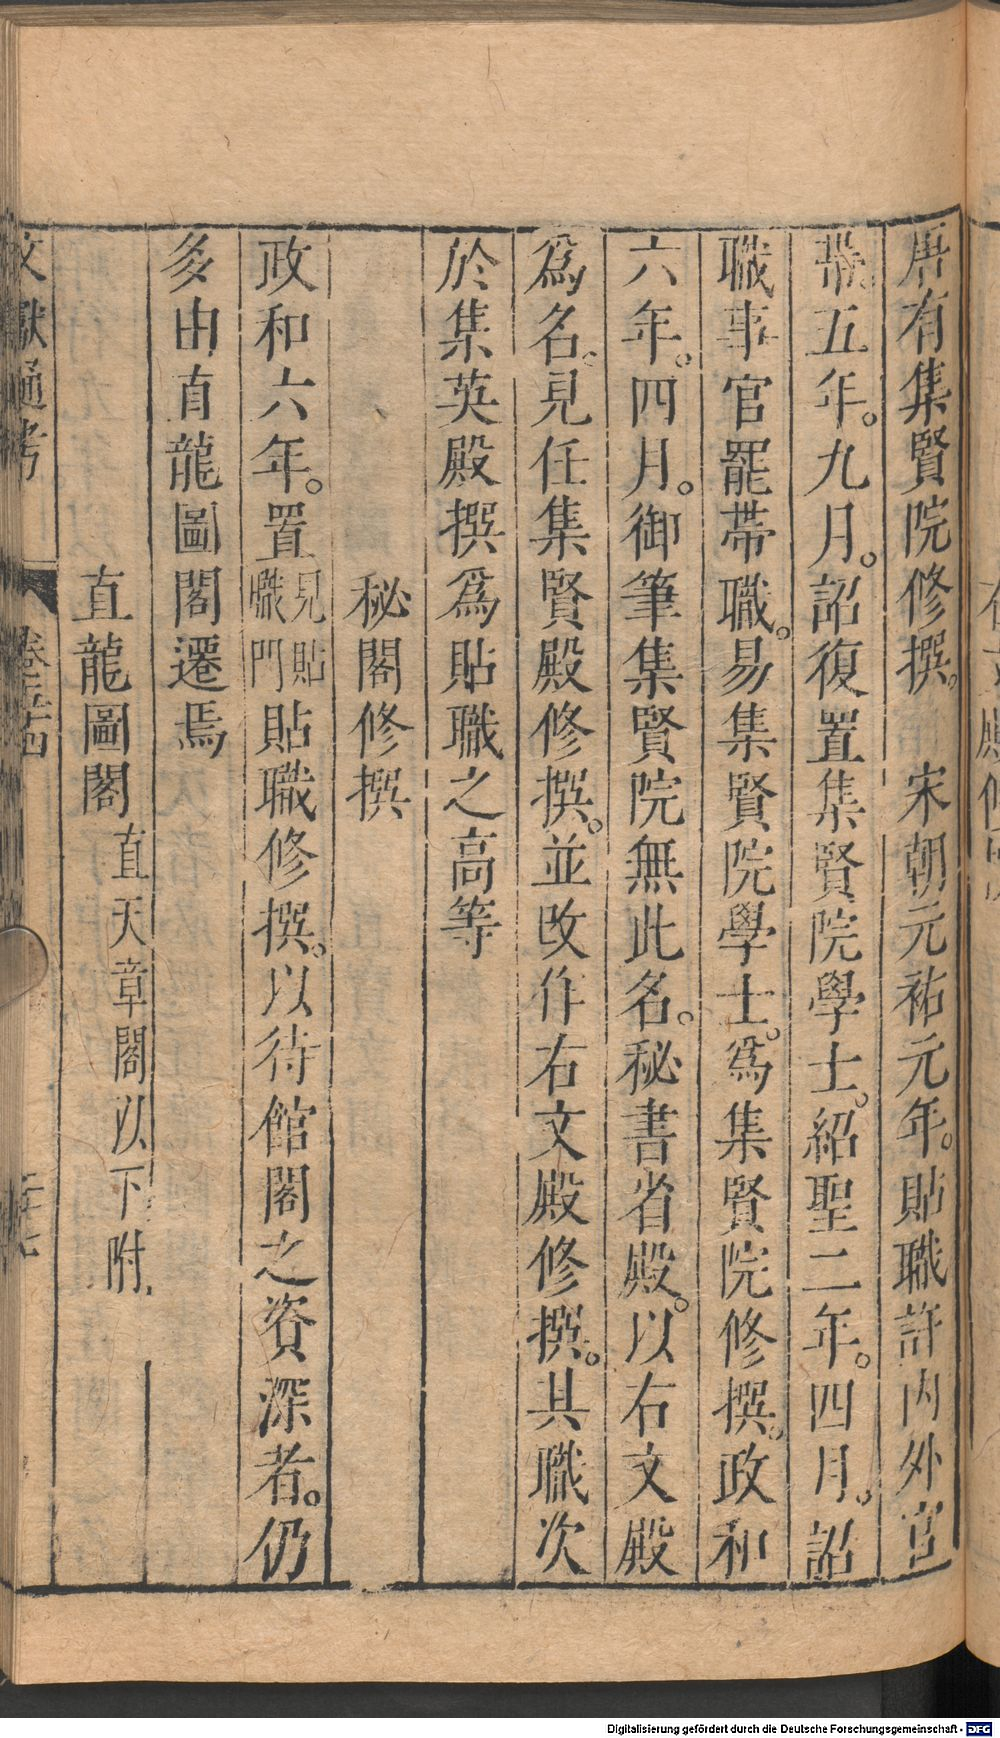 唐有集賢院修撰。　宋朝元祐元年。貼職許內外官
帶。五年。九月。詔復置集賢院學士。紹聖二年。四月。詔
職事官罷帶職。易集賢院學士。爲集賢院修撰。政和
六年。四月。御筆集賢院無此名。秘書省殿。以右文殿
爲名。見任集賢殿修撰。並改作右文殿修撰。其職次
於集英殿撰爲貼職之高等
秘閣修撰
政和六年。置見貼職門貼職修撰。以待館閣之資深者。仍
多由直龍圖閣遷焉
直龍圖閣直天章閣以下附
文獻通考　卷五十四
Digitalisierung gefördert durch die Deutsche Forschungsgemeinschaft · DFG